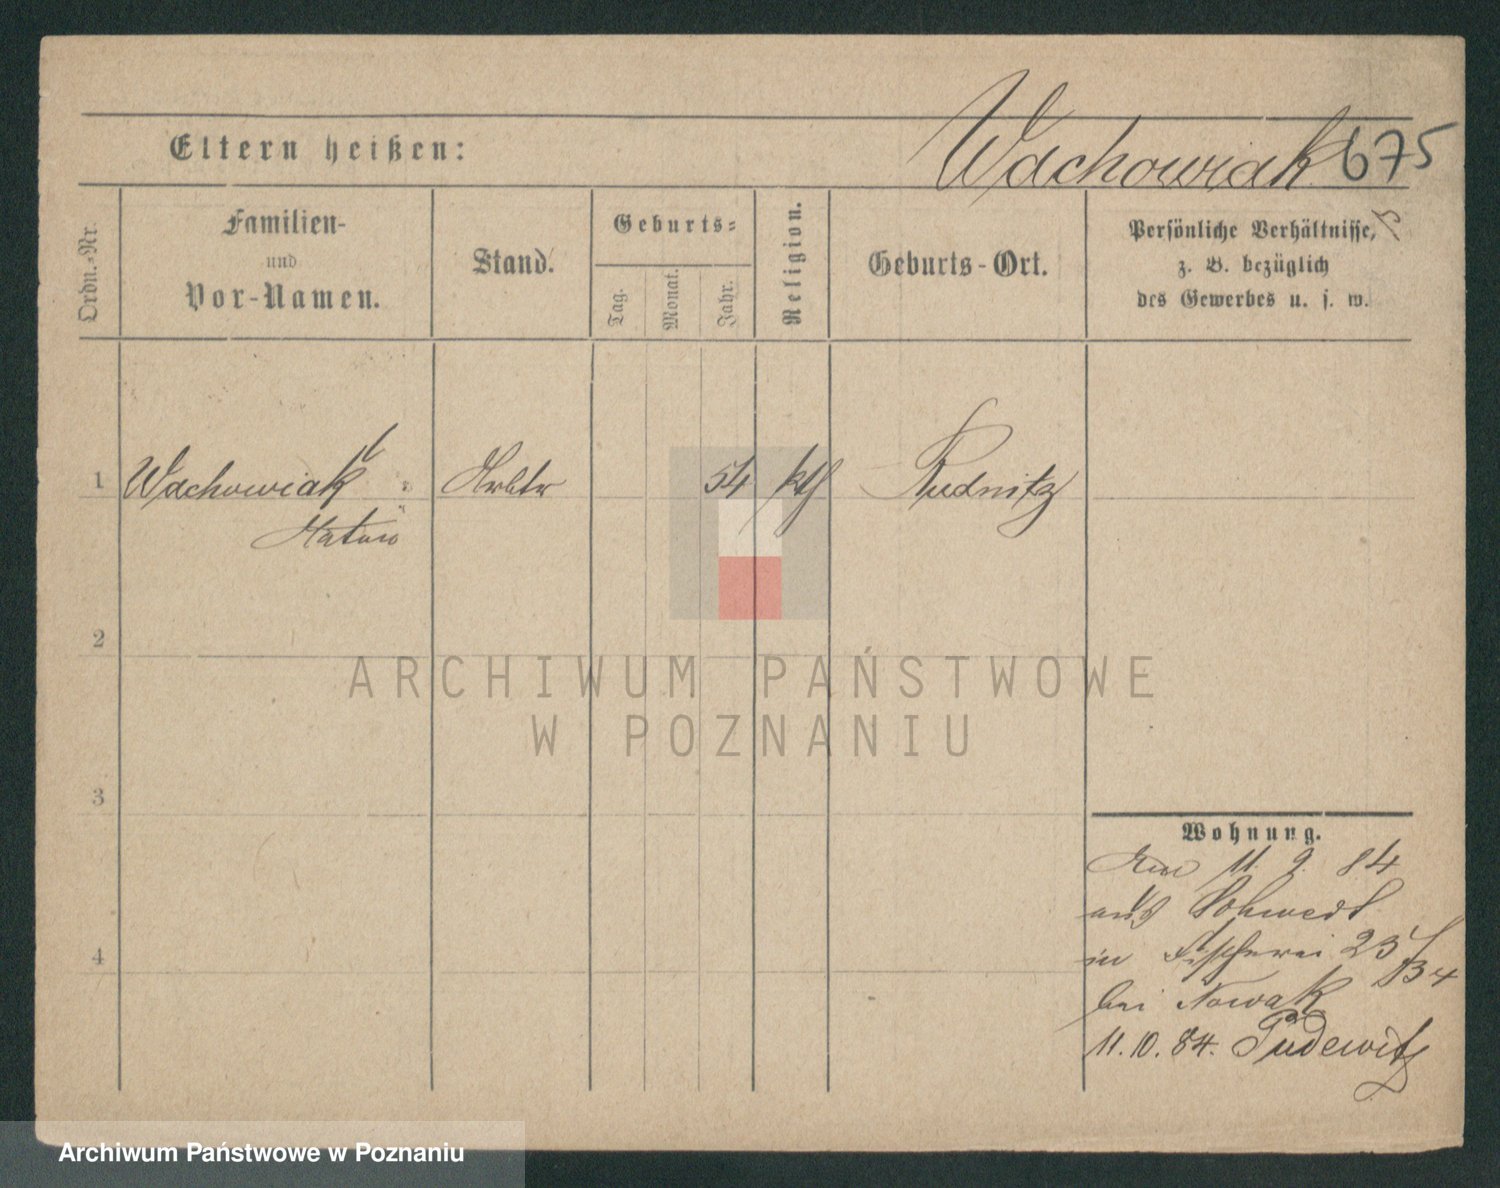 Wachowiak 675
Eltern heißen:
Ordn.-Nr.
Familien-
und
Vor-Namen.
Stand.
Geburts-
Tag.
Monat.
Jahr.
Religion.
Geburts-Ort.
Persönliche Verhältnisse,
z. B. bezüglich
des Gewerbes u. s. w.
1 Wachowiak Arbtr 54 kth Rudnitz
2
3
4
ARCHIWUM PAŃSTWOWE
W POZNANIU
Wohnung.
11. 9. 84
aus Schwedt
in Fischerei 23/
B4
bei Nowak
11. 10. 84. Pudewitz
Archiwum Państwowe w Poznaniu